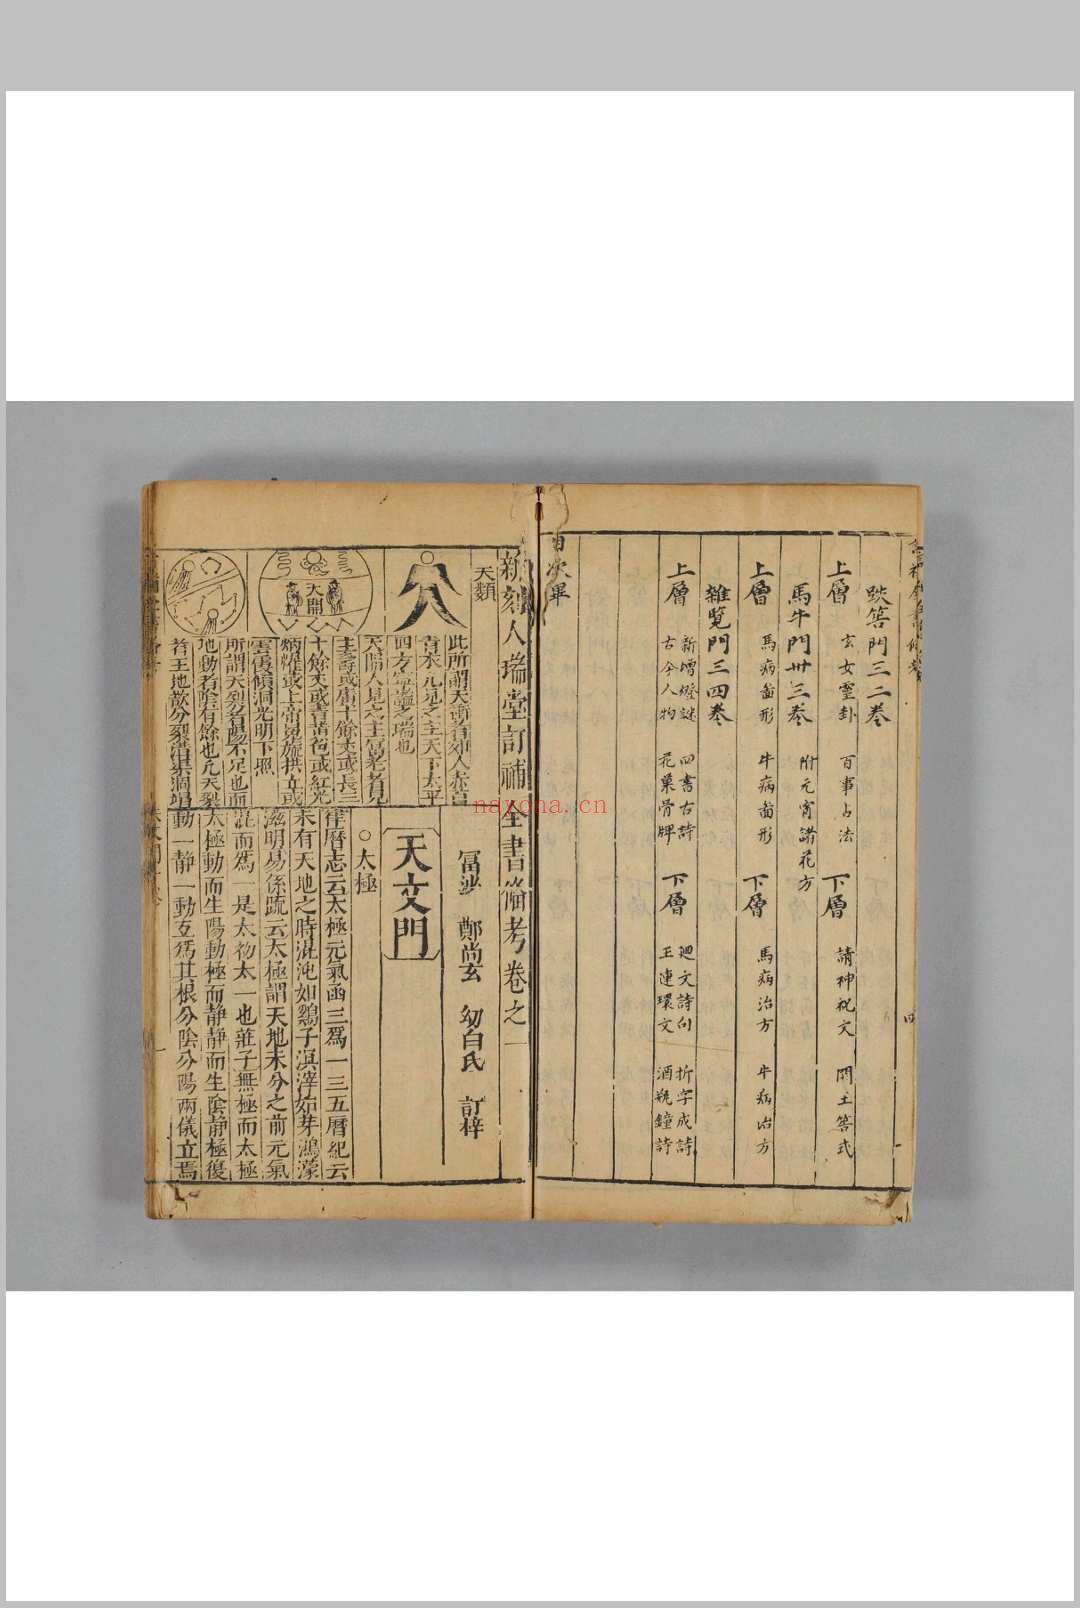 跌筶門三二卷
上層 玄女靈卦 百事占法 下層 請神祝文 問土答式
馬牛門卅三卷 附元宵諸花方
上層 馬病啚形 牛病啚形 下層 馬病治方 牛病治方
雜覽門三四卷
上層 新增燈謎 四書古詩 下層 廻文詩句 折字成詩
古今人物 花菓骨牌 玉連環文 酒瓶鐘詩
目次畢
四
新刻人瑞堂訂補全書備考卷之一
天類
富沙 鄭尚玄 幼白氏 訂梓
天文門
太極
律曆志云太極元氣函三爲一三五曆紀云
未有天地之時混沌如鷄子溟涬茹芽鴻濛
滋明易係疏云太極謂天地未分之前元氣
混而爲一是太初太一也莊子無極而太極
太極動而生陽動極而静静而生陰静極復
動一静一動互爲其根分陰分陽兩儀立焉
四方寧謐之瑞也
天開人見之主富貴老者見
主壽或廣十餘丈或長三
十餘丈或青黃色或紅光
炳耀或上帝冕旒拱立或
雲優傾洞光明下照
所謂天裂者陽不足也而
地動者陰有餘也凡天裂
大開
一
nayona.cn